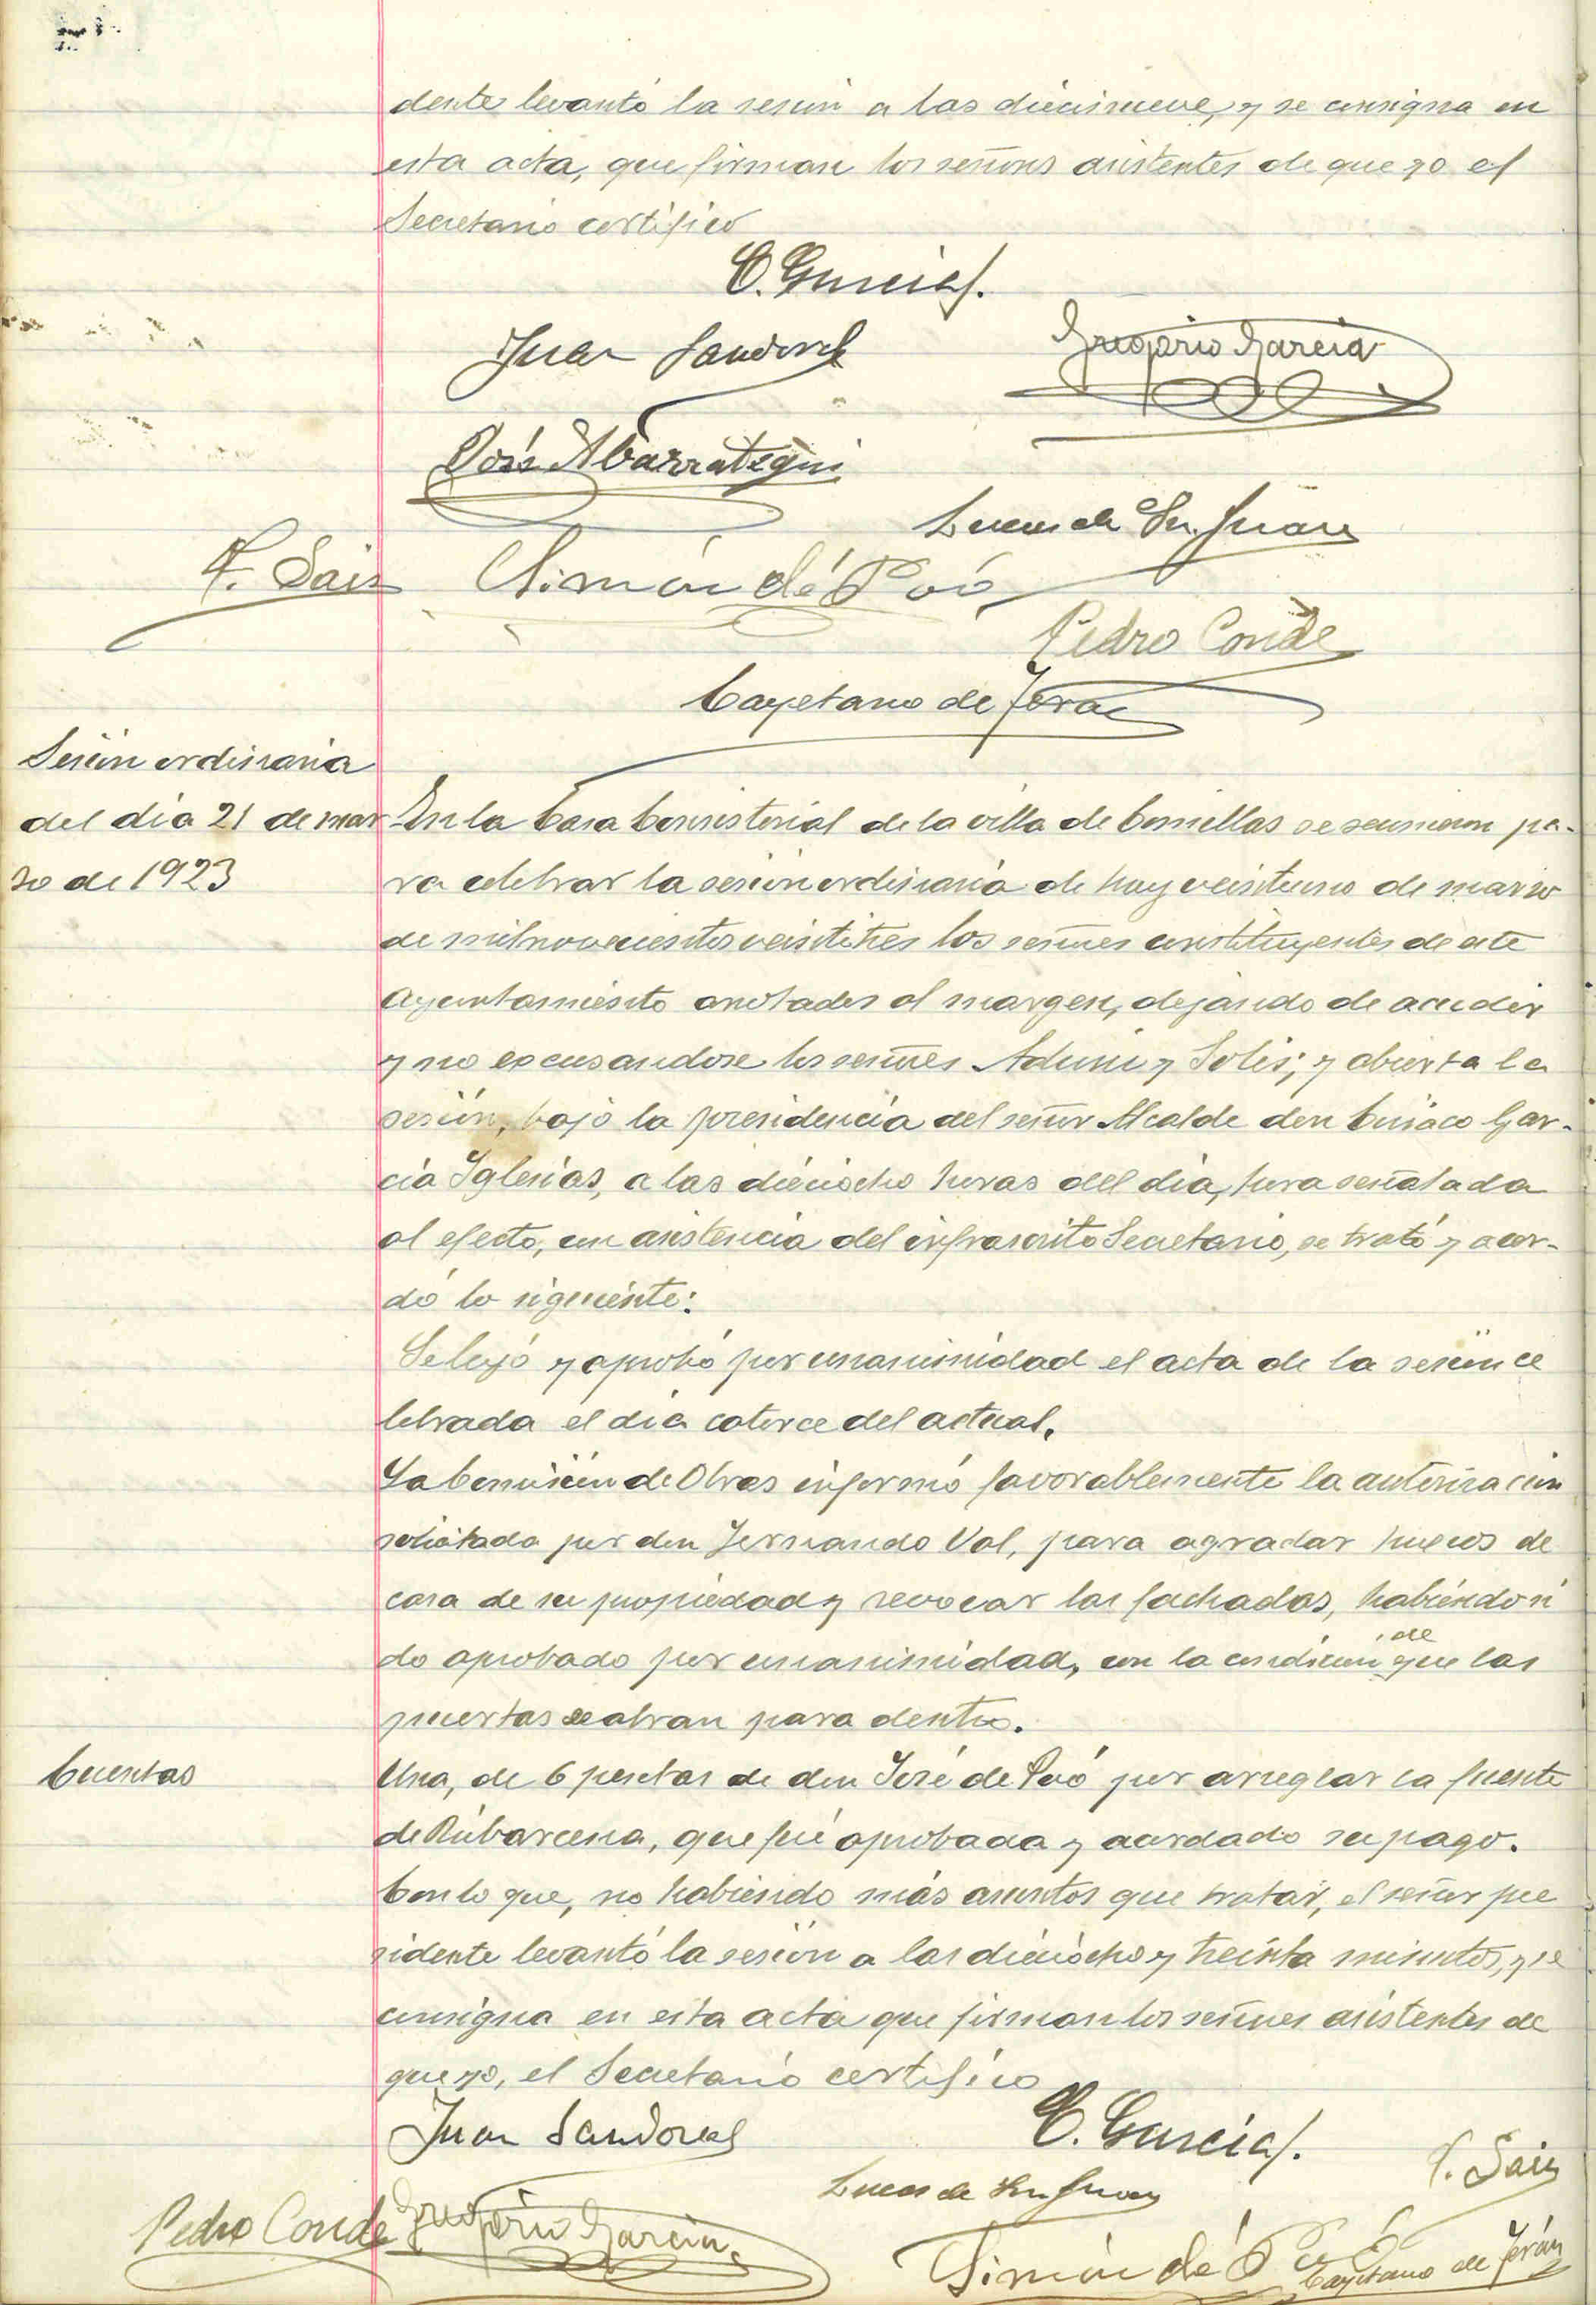 dente levantó la sesión a las diecinueve, y se consigna en
esta acta, que firman los señores asistentes de que yo el
Secretario certifico
C. García.
Juan Sandoval
Gregorio García
José Abarrategui
Lucas de San Juan
F. Saiz
Simón de Poó
Pedro Conde
Cayetano de Terán
Sesión ordinaria
del dia 21 de mar
zo de 1923
En la Casa Consistorial de la villa de Comillas se reunieron pa-
ra celebrar la sesión ordinaria de hoy veintiuno de marzo
de mil novecientos veintitres los señores constituyentes de este
Ayuntamiento anotados al margen, dejando de acudir
y no excusandose los señores y Solis; y abierta la
sesión, bajo la presidencia del señor Alcalde don Ciriaco Gar-
cia Iglesias, a las dieciocho horas del dia, hora señalada
al efecto, con asistencia del infrascrito Secretario, se trató y acor-
dó lo siguiente:
Se leyó y aprobó por unanimidad el acta de la sesión ce
lebrada el dia catorce del actual.
La Comisión de Obras informó favorablemente la autorización
solicitada por don Fernando Val, para agradar huecos de
casa de su propiedad y revocar las fachadas, habiendo si
do aprobado por unanimidad, con la condición de que las
puertas se abran para dentro.
Cuentas
Una, de 6 pesetas de don José de Poó por arreglar la fuente
de Rubarcena, que fué aprobada y acordado su pago.
Con lo que, no habiendo más asuntos que tratar, el señor pre
sidente levantó la sesión a las dieciocho y treinta minutos, y se
consigna en esta acta que firman los señores asistentes de
que yo, el Secretario certifico
Juan Sandoval
C. García.
F. Saiz
Lucas de San Juan
Pedro Conde
Gregorio García
Simón de Poó
Cayetano de Terán